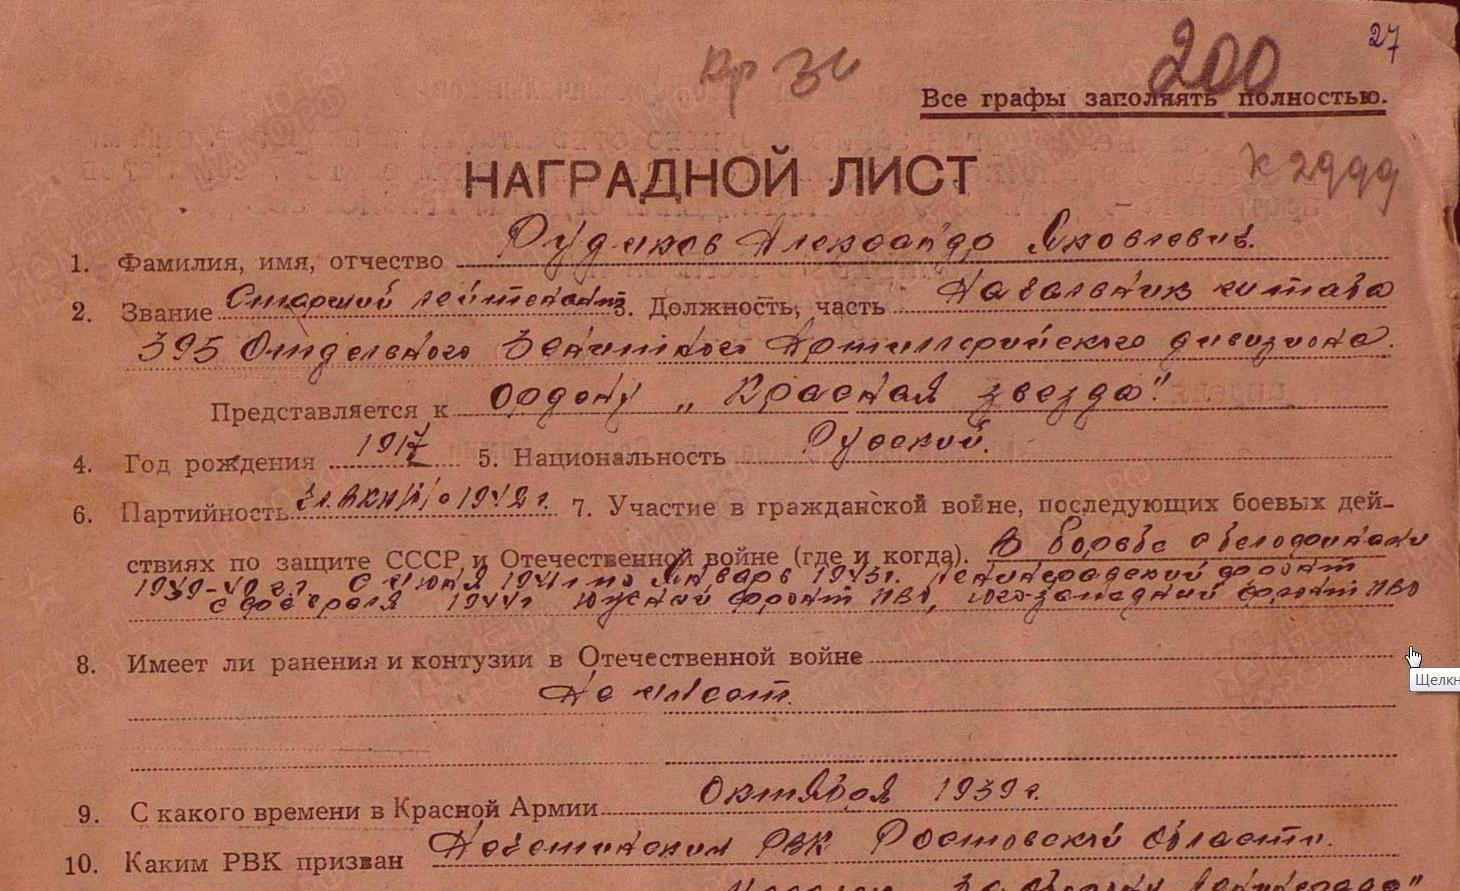 27
200
Все графы заполнять полностью.
НАГРАДНОЙ ЛИСТ
1. Фамилия, имя, отчество Рудиков Александр Яковлевич.
2. Звание Старший лейтенант 3. Должность, часть Начальник штаба
395 Отдельного Зенитного Артиллерийского дивизиона.
Представляется к ордену „Красная звезда".
4. Год рождения 1917 5. Национальность Русский.
6. Партийность чл. ВКП(б) с 1942 г. 7. Участие в гражданской войне, последующих боевых дей-
ствиях по защите СССР и Отечественной войне (где и когда). В борьбе с белофинами
1939-40 г.г. С июня 1941 г. по Январь 1943 г. Ленинградский фронт
с февраля 1944 г Южный фронт ПВО, Юго-западный фронт ПВО
8. Имеет ли ранения и контузии в Отечественной войне
Не имеет.
9. С какого времени в Красной Армии Октября 1939 г.
10. Каким РВК призван РВК Ростовской области.
Щелкн